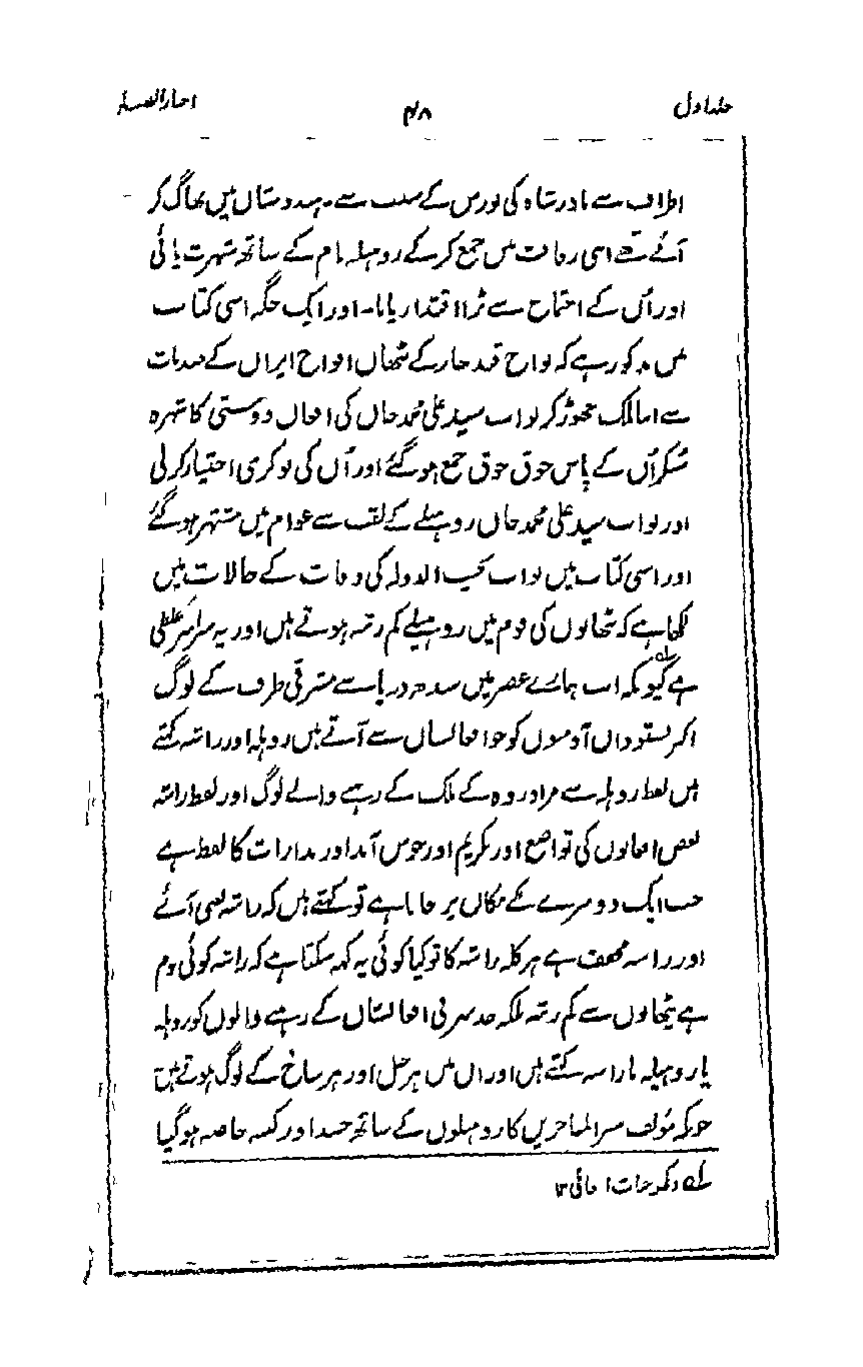 جلد اول ۴۸ اخبار الصنادید
اطراف سے نادر شاہ کی یورش کے سبب سے ہندوستان میں بھاگ کر
آئے تھے اسی رفاقت میں جمع کرکے روہیلہ نام کے ساتھ شہرت پائی
اور اُن کے اجتماع سے بڑا اقتدار پایا۔ اور ایک جگہ اسی کتاب
میں مذکور ہے کہ نواح قندھار کے پٹھان افواج ایران کے صدمات
سے اپنا ملک چھوڑ کر نواب سید علی محمد خاں کی افغان دوستی کا شہرہ
سُنکر اُن کے پاس جوق جوق جمع ہوگئے اور اُن کی نوکری اختیار کرلی
اور نواب سید علی محمد خاں روہیلے کے لقب سے عوام میں مشتہر ہوگئے
اور اسی کتاب میں نواب نجیب الدولہ کی وفات کے حالات میں
لکھا ہے کہ پٹھانوں کی قوم میں روہیلے کم رتبہ ہوتے ہیں اور یہ سراسر غلطی
ہے کیونکہ اب ہمارے عصر میں سندھ دریا سے مشرقی طرف کے لوگ
اکثر پشتو داں آدمیوں کو جو افغانستان سے آتے ہیں روہلہ اور راشہ کہتے
ہیں لفظ روہلہ سے مراد روہ کے ملک کے رہنے والے لوگ اور لفظ راشہ
بعض افغانوں کی تواضع اور تکریم اور خوش آمد اور مدارات کا لفظ ہے
جب ایک دوسرے کے مکان پر جاتا ہے تو کہتے ہیں کہ راشہ یعنی آئے
اور راشہ مخفف ہے ہر کلہ راشہ کا تو کیا کوئی یہ کہہ سکتا ہے کہ راشہ کوئی قوم
ہے پٹھانوں سے کم رتبہ بلکہ حد شرقی افغانستان کے رہنے والوں کو روہلہ
یا روہیلہ یا راشہ کہتے ہیں اور ان میں ہر خیل اور ہر شاخ کے لوگ ہوتے ہیں
چونکہ مؤلف سیر المتاخرین کا روہیلوں کے ساتھ حسد اور کینہ خاصہ ہوگیا
لے دیکھو حیات افغانی ۱۲